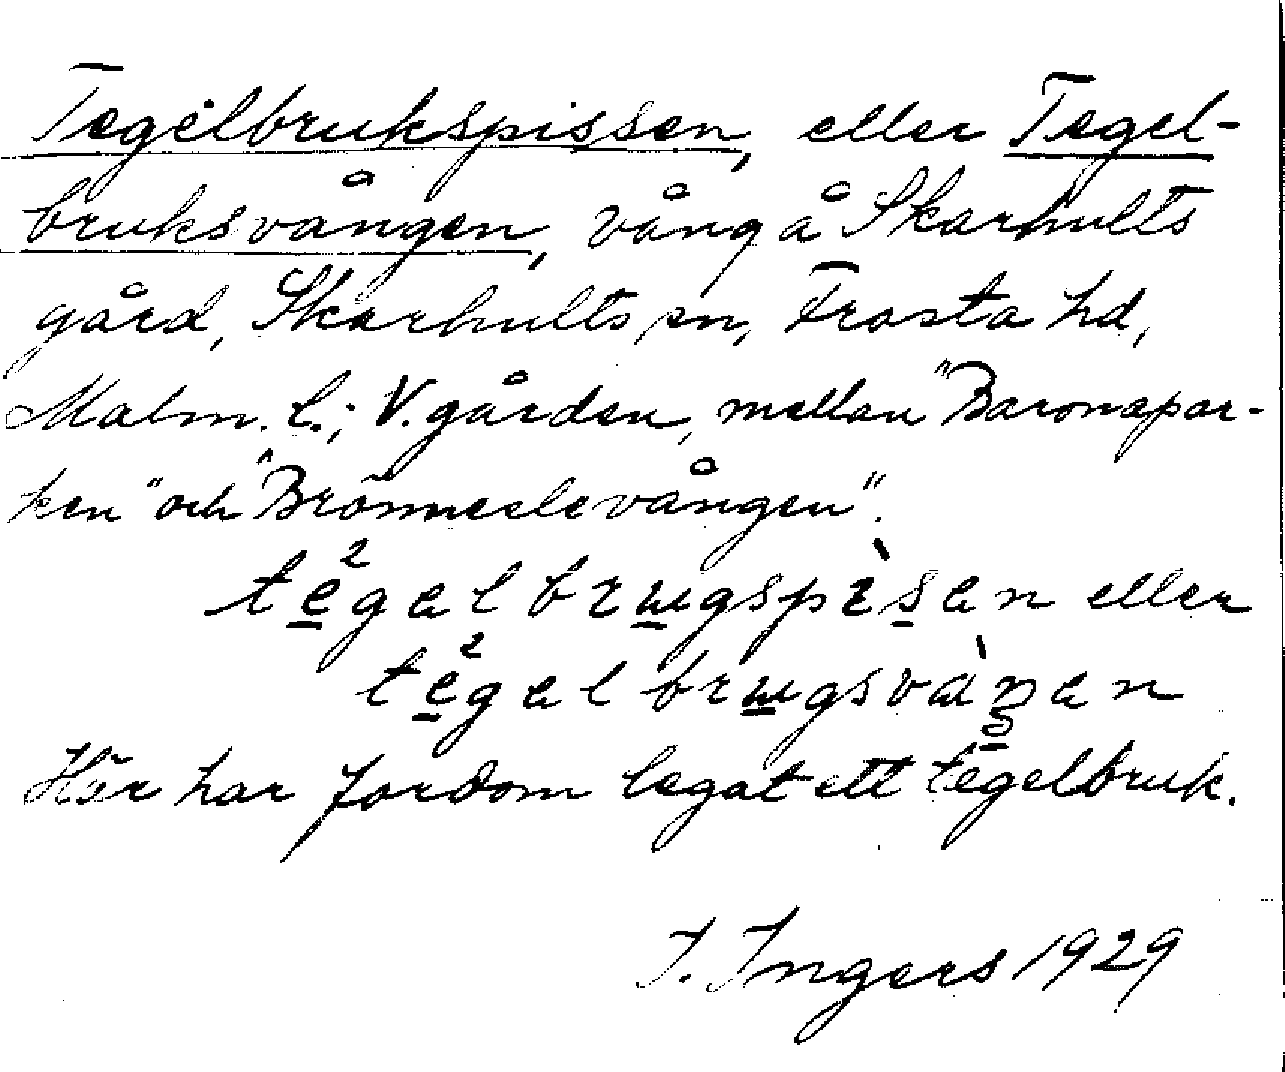 Tegelbrukspissen, eller Tegel-
bruksvången, vång å Skarhults
gård, Skarhults sn, Frosta hd,
Malm. l.; V. gården, mellan "Baronapar-
ken" och "Brönneslevången".
te²gəlbrɯgspìsən eller
te²gəlbrɯgsvàŋən
Här har fordom legat ett tegelbruk.
I. Ingers 1929